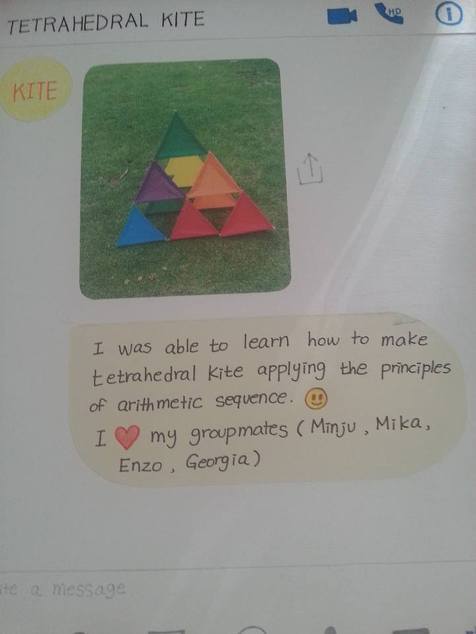 TETRAHEDRAL KITE
HD
i
KITE
I was able to learn how to make
tetrahedral kite applying the principles
of arithmetic sequence. 🙂
I ❤ my groupmates (Minju, Mika,
Enzo, Georgia)
a message